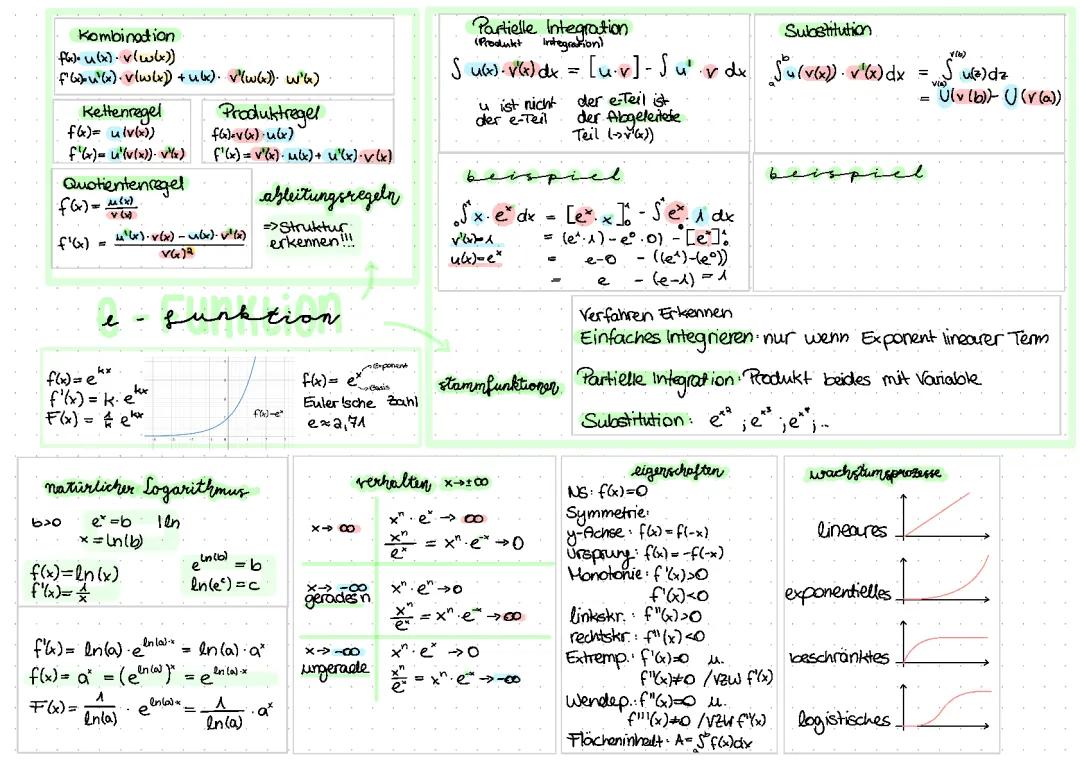 Kombination
f(x)= u(x) · v(w(x))
f'(x)= u'(x) · v(w(x)) + u(x) · v'(w(x)) · w'(x)
Kettenregel
f(x)= u(v(x))
f'(x)= u'(v(x)) · v'(x)
Produktregel
f(x)=v(x) · u(x)
f'(x)= v'(x) · u(x) + u'(x) · v(x)
Quotientenregel
f(x) = u(x)/v(x)
f'(x) = u'(x) · v(x) - u(x) · v'(x) / v(x)²
ableitungsregeln
=> Struktur
erkennen!!!
Partielle Integration
(Produkt Integration)
∫ u(x) · v'(x) dx = [u·v] - ∫ u' · v dx
u ist nicht
der e-Teil
der e-Teil ist
der Abgeleitete
Teil (->v'(x))
Substitution
a∫b u(v(x)) · v'(x) dx = v(a)∫v(b) u(z) dz
= U(v(b)) - U(v(a))
beispiel
0∫1 x · e^x dx = [e^x · x]0^1 - 0∫1 e^x · 1 dx
v'(x)=1 = (e^1·1) - e^0·0) - [e^x]0^1
u(x)=e^x = e-0 - ((e^1)-(e^0))
= e - (e-1) = 1
beispiel
e - Funktion
e - funktion
f(x) = e^kx
f'(x) = k · e^kx
F(x) = 1/k e^kx
f(x)=e^x
f(x) = e^x
Exponent
Basis
Euler'sche Zahl
e ≈ 2,71
stammfunktionen
Verfahren Erkennen
Einfaches Integrieren: nur wenn Exponent linearer Term
Partielle Integration: Produkt beides mit Variable
Substitution: e^x² ; e^x³ ; e^x⁴ ; ..
natürlicher Logarithmus
b>0 e^x = b | ln
x = ln(b)
f(x)=ln(x)
f'(x)= 1/x
e^ln(b) = b
ln(e^c) = c
f'(x)= ln(a) · e^ln(a)·x = ln(a) · a^x
f(x)= a^x = (e^ln(a))^x = e^ln(a)·x
F(x)= 1/ln(a) · e^ln(a)·x = 1/ln(a) · a^x
verhalten x→±∞
x→ ∞
x^n · e^x → ∞
x^n/e^x = x^n · e^-x → 0
x→ -∞
gerades n
x^n · e^x → 0
x^n/e^x = x^n · e^-x → ∞
x→ -∞
ungerade
x^n · e^x → 0
x^n/e^x = x^n · e^-x → -∞
eigenschaften
NS: f(x)=0
Symmetrie:
y-Achse: f(x) = f(-x)
Ursprung: f(x) = -f(-x)
Monotonie: f'(x)>0
f'(x)<0
linkskr.: f''(x)>0
rechtskr.: f''(x)<0
Extremp.: f'(x)=0 u.
f''(x)≠0 / VZW f'(x)
Wendep.: f''(x)=0 u.
f'''(x)≠0 / VZW f''(x)
Flächeninhalt: A= a∫b f(x)dx
wachstumsprozesse
lineares
exponentielles
beschränktes
logistisches